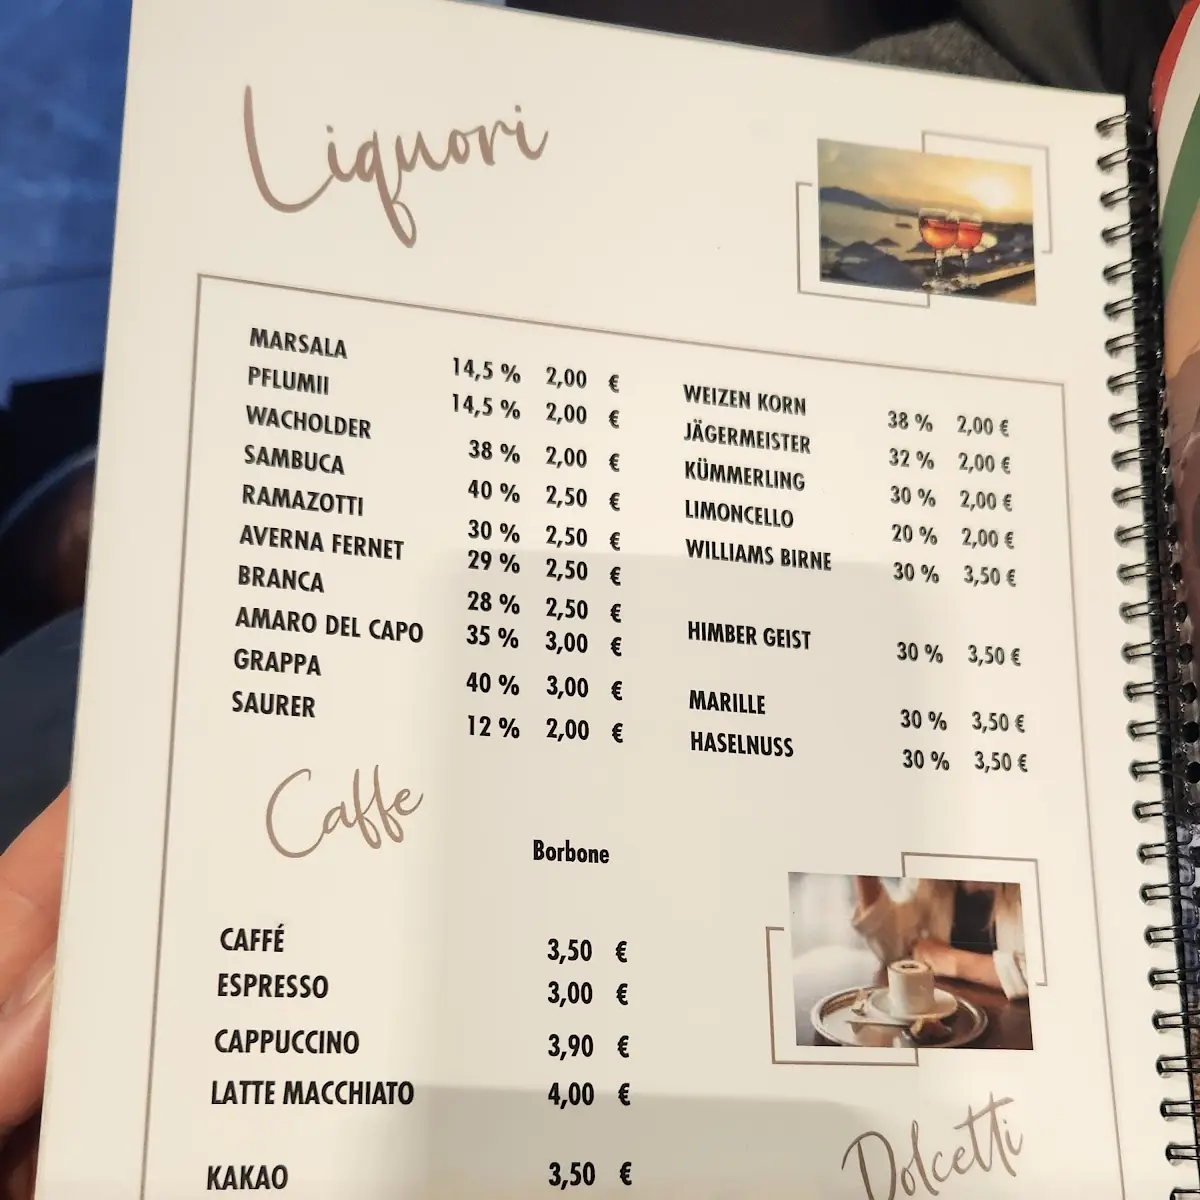 Liquori
MARSALA 14,5 % 2,00 €
PFLUMII 14,5 % 2,00 €
WACHOLDER 38 % 2,00 €
SAMBUCA 40 % 2,50 €
RAMAZOTTI 30 % 2,50 €
AVERNA FERNET 29 % 2,50 €
BRANCA 28 % 2,50 €
AMARO DEL CAPO 35 % 3,00 €
GRAPPA 40 % 3,00 €
SAURER 12 % 2,00 €
WEIZEN KORN 38 % 2,00 €
JÄGERMEISTER 32 % 2,00 €
KÜMMERLING 30 % 2,00 €
LIMONCELLO 20 % 2,00 €
WILLIAMS BIRNE 30 % 3,50 €
HIMBER GEIST 30 % 3,50 €
MARILLE 30 % 3,50 €
HASELNUSS 30 % 3,50 €
Caffe
Borbone
CAFFÉ 3,50 €
ESPRESSO 3,00 €
CAPPUCCINO 3,90 €
LATTE MACCHIATO 4,00 €
KAKAO 3,50 €
Dolcetti